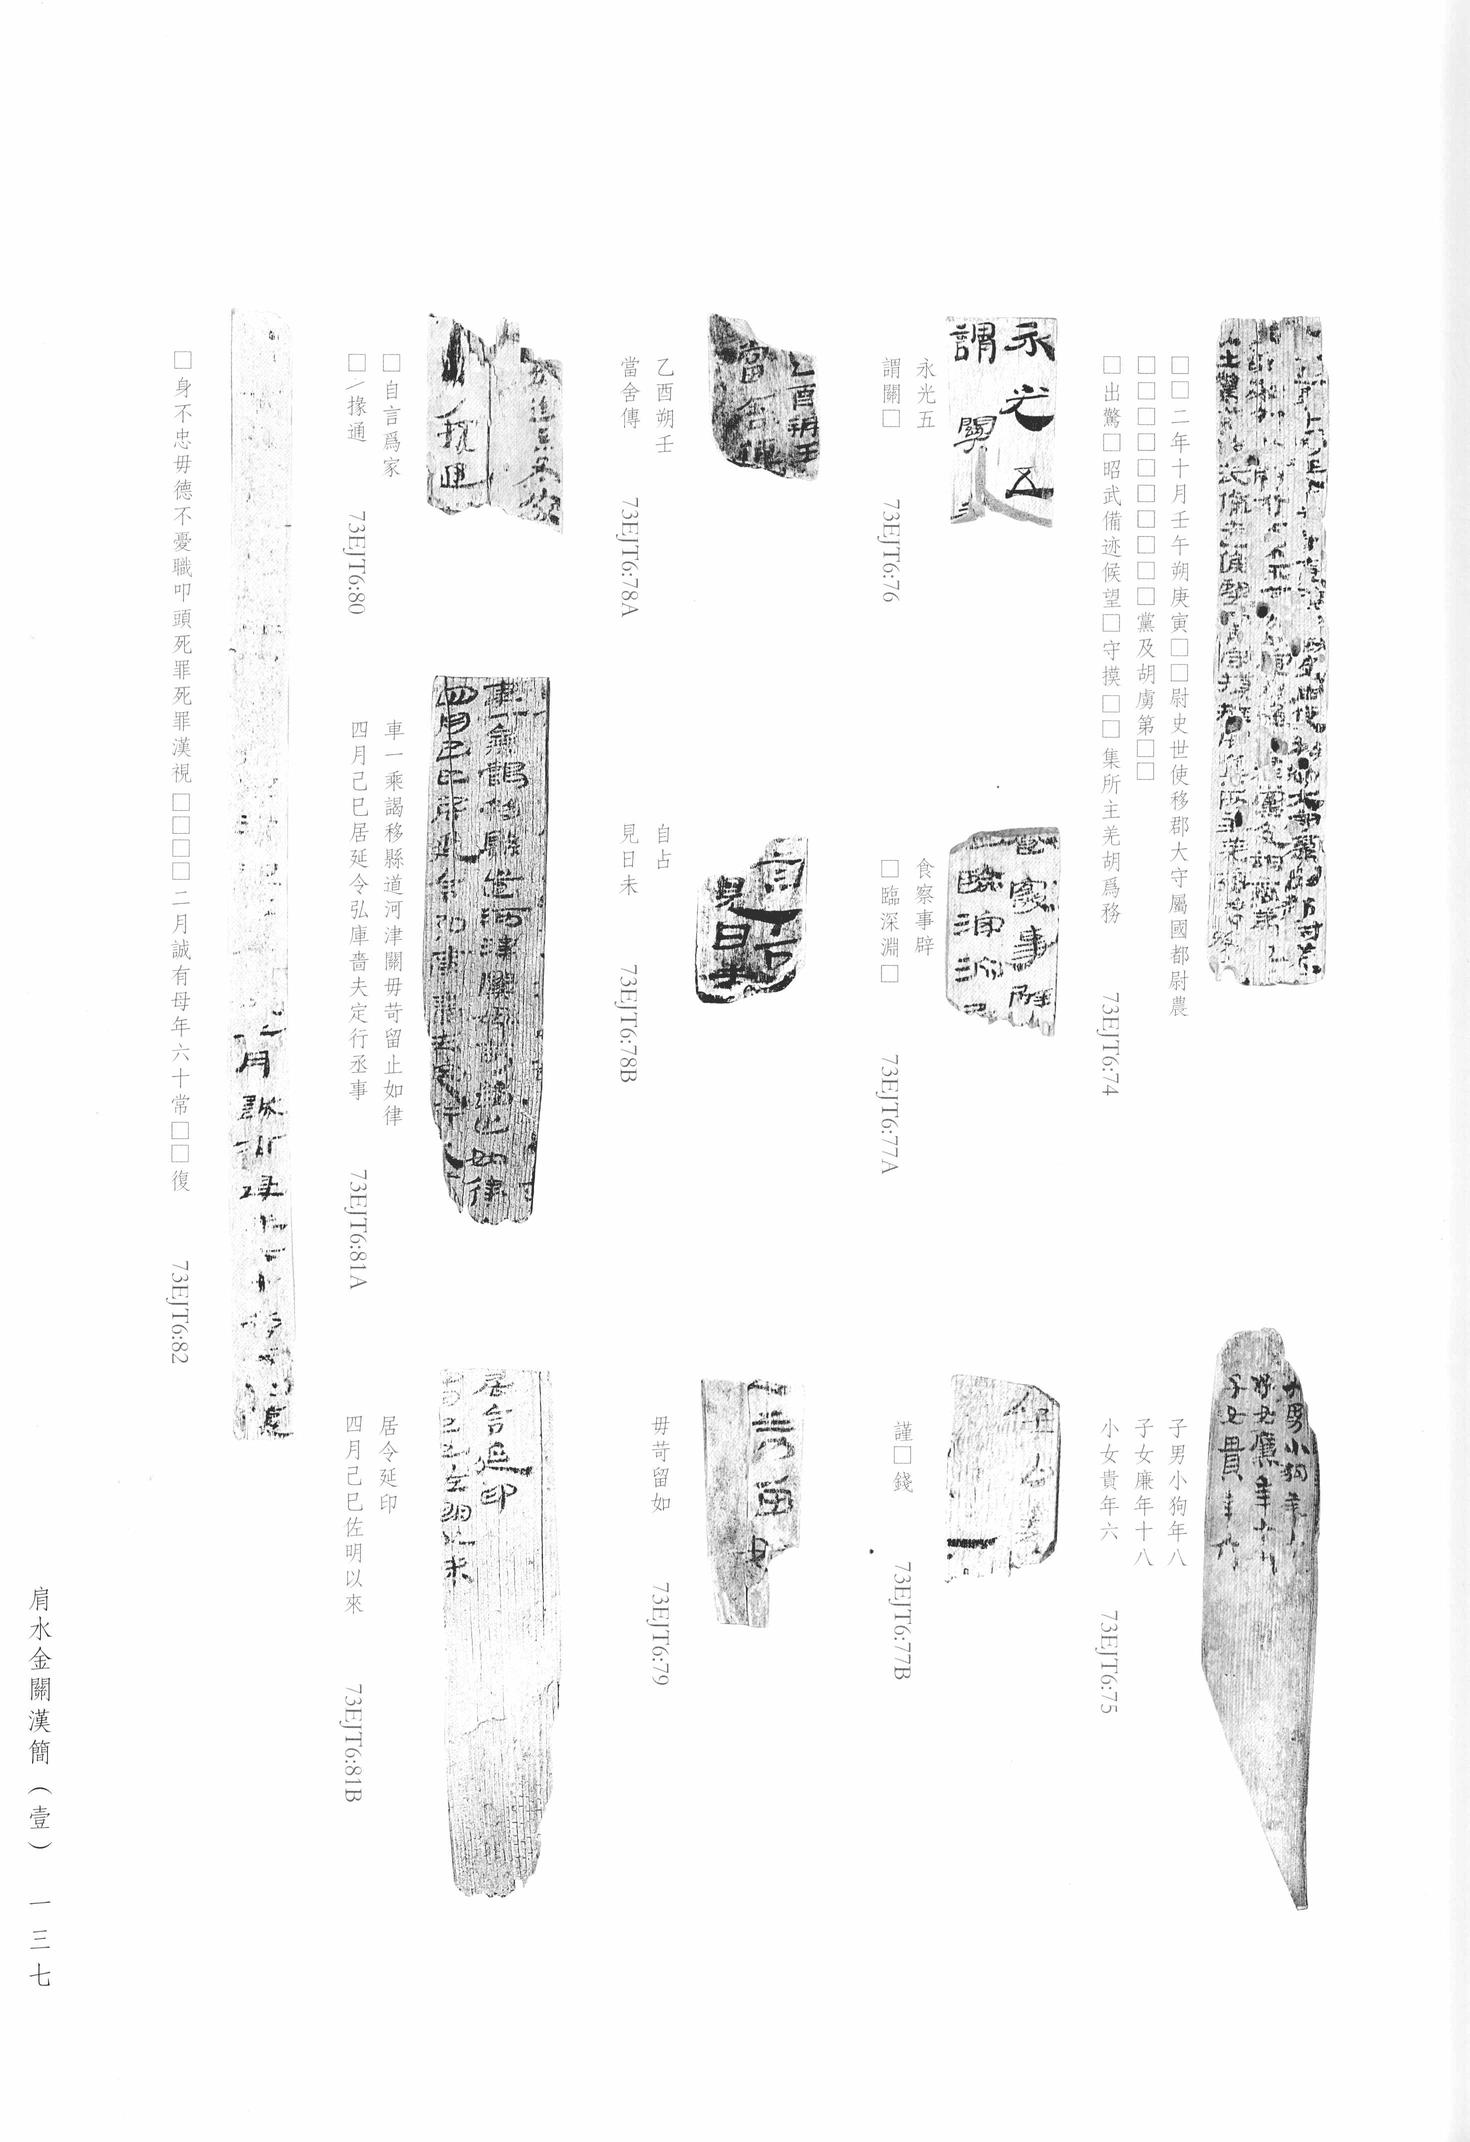 □□二年十月壬午朔庚寅□□尉史世使移郡大守屬國都尉農
□□□□□□□□□□黨及胡虜第□□
□出驚□昭武備迹候望□守摸□□集所主羌胡爲務
73EJT6:74
子男小狗年八
子女廉年十八
小女貴年六
73EJT6:75
永光五
謂關□
73EJT6:76
食察事辟
□臨深淵□
73EJT6:77A
謹□錢
73EJT6:77B
乙酉朔壬
當舍傳
73EJT6:78A
自占
見日未
73EJT6:78B
毋苛留如
73EJT6:79
□自言爲家
□/掾通
73EJT6:80
車一乘謁移縣道河津關毋苛留止如律
四月己巳居延令弘庫嗇夫定行丞事
73EJT6:81A
居令延印
四月己巳佐明以來
73EJT6:81B
□身不忠毋德不憂職叩頭死罪死罪漢視□□□□二月誠有母年六十常□□復
73EJT6:82
肩水金關漢簡（壹）　一三七